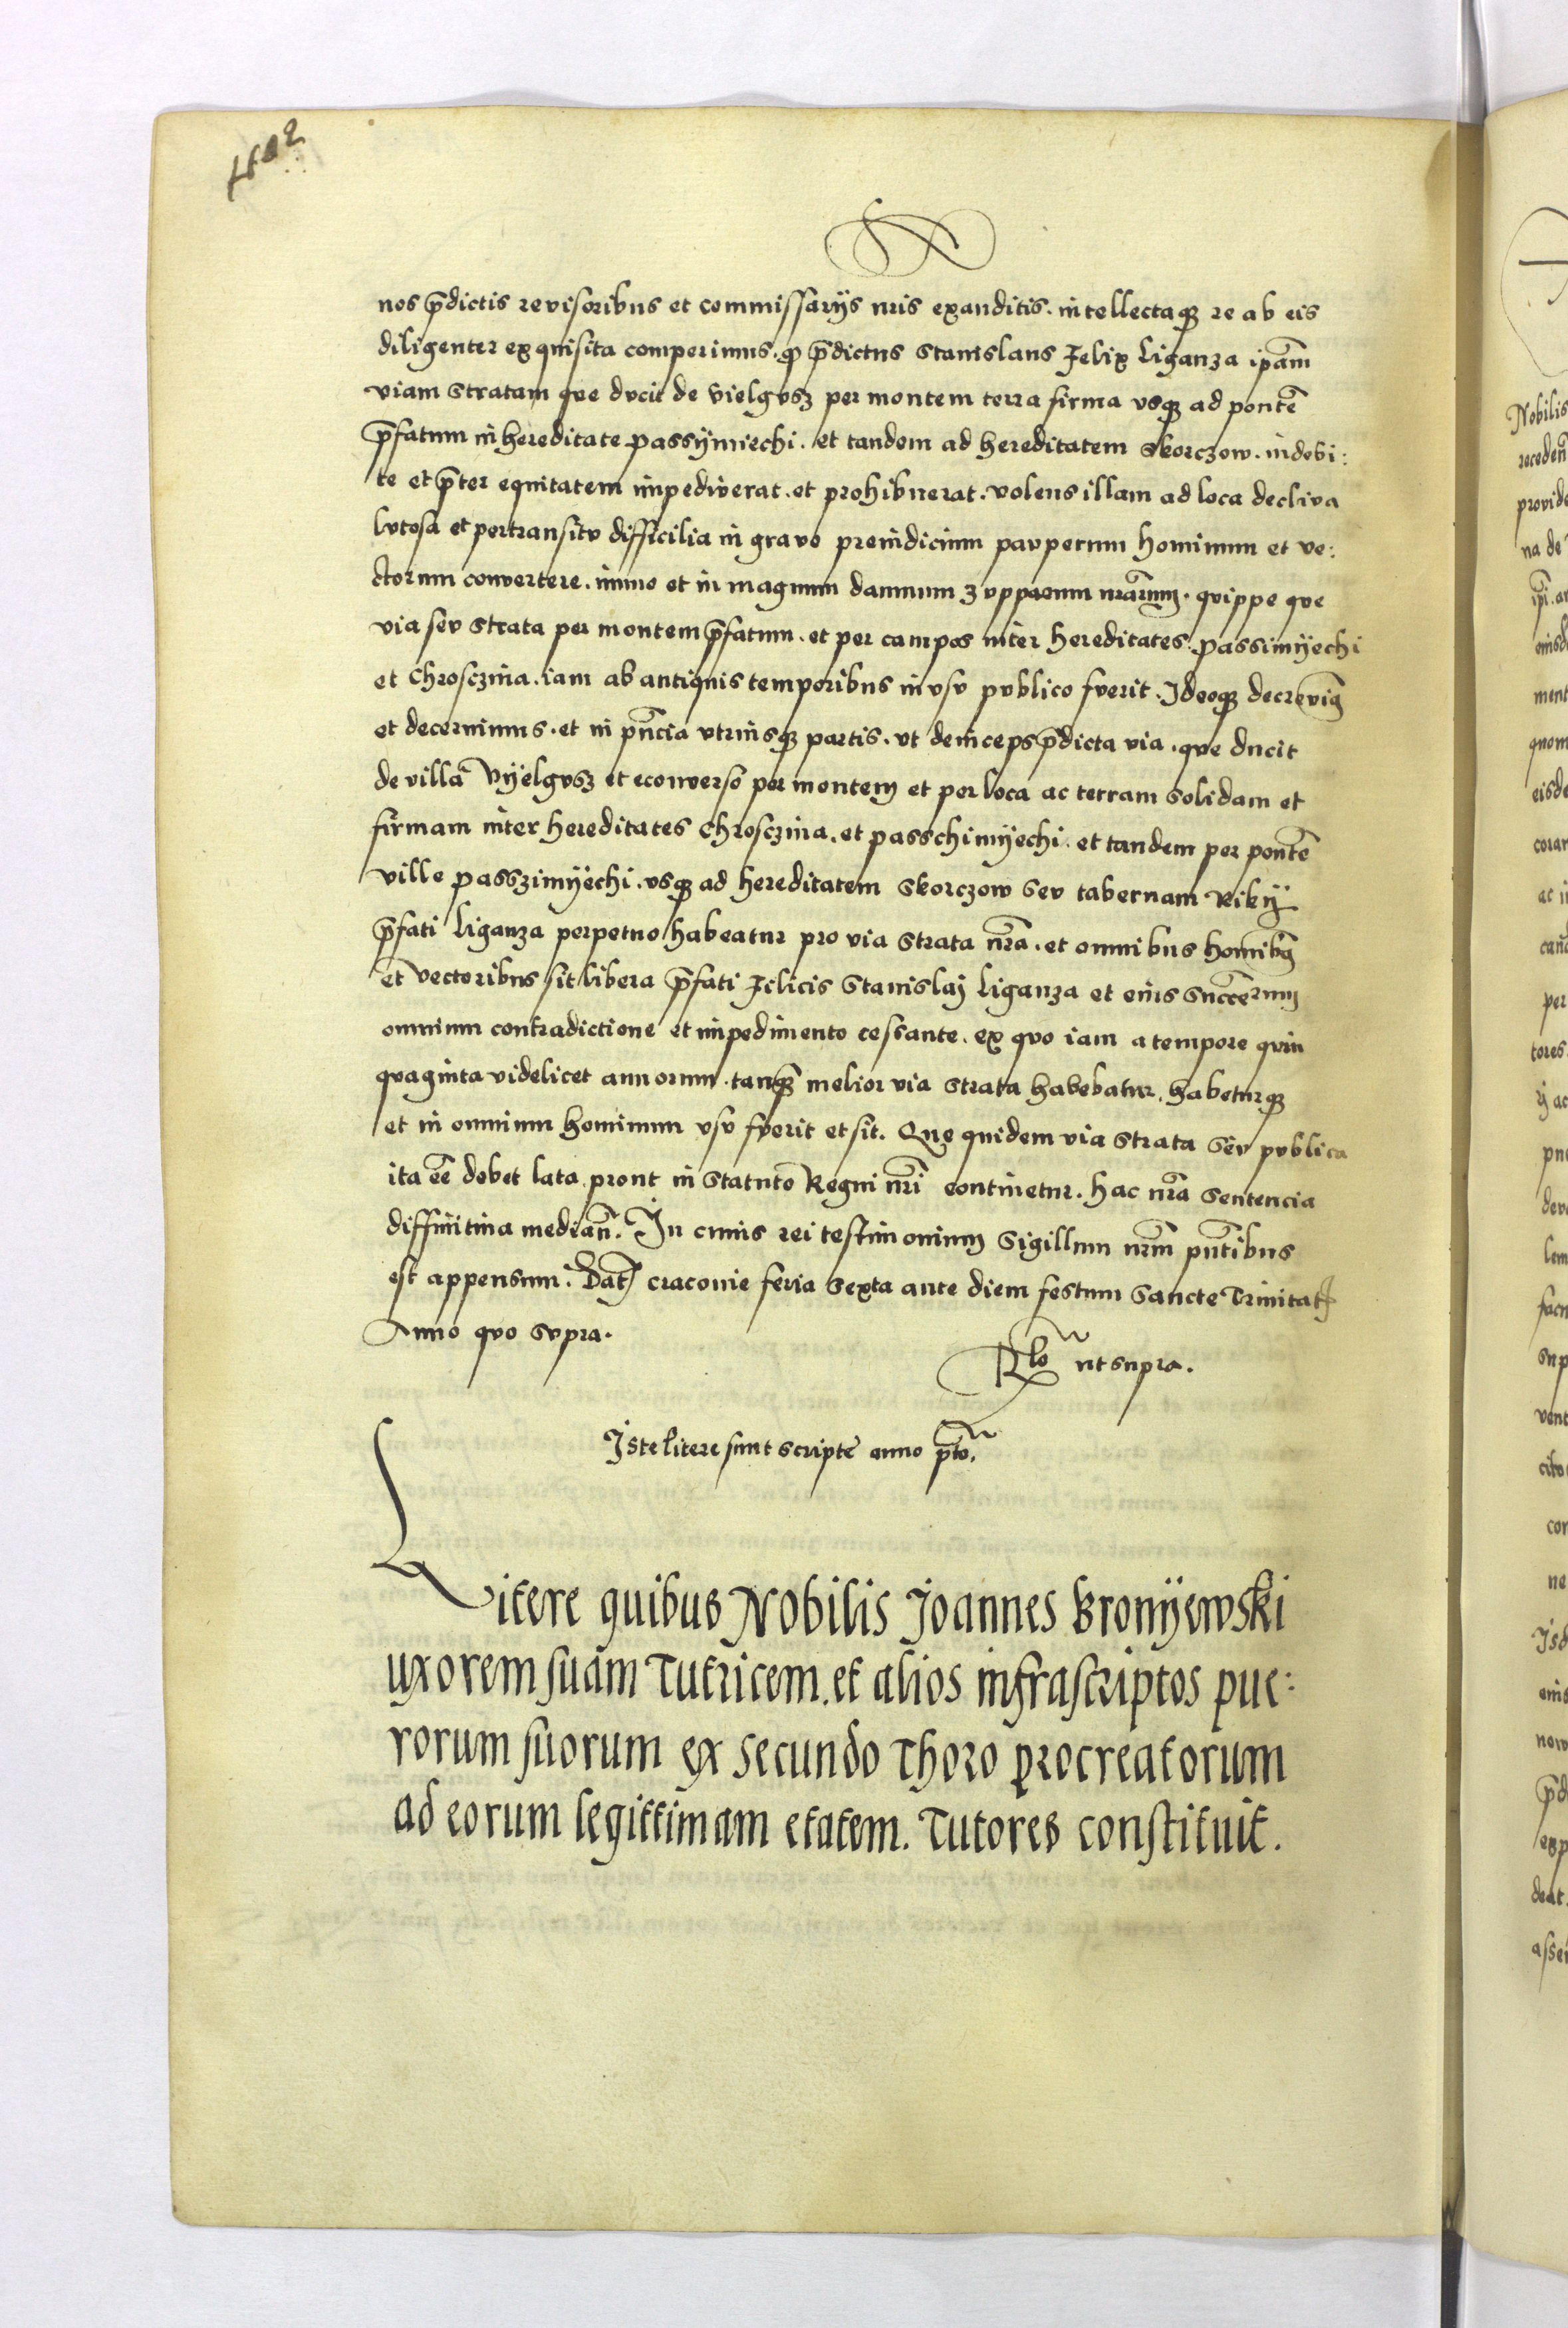 nos p̄dictis revisoribus et commissarijs nr̄is exauditis. intellectaqꝫ re ab eis
diligenter exquisita comperimus. ꝙ p̄dictus Stanislaus Felix Liganza ip̄am
viam stratam que ducit de Vielgusz per montem terra firma usqꝫ ad pontē
p̄fatum in hereditate Passymiechi. et tandem ad hereditatem Skorczow. indebi:
te et p̄ter equitatem impediverat. et prohibuerat. volens illam ad loca decliva
lutosa et pertransitu difficilia in grave preiudicium pauperum hominum et ve:
ctorum convertere. immo et in magnum damnum zupparum nr̄arum. quippe que
via seu strata per montem p̄fatum. et per campos inter hereditates. Passimyechi
et Chrosczina. iam ab antiquis temporibus in usu publico fuerit. Ideoqꝫ decrevimꝰ
et decernimus. et in pn̄cia utriusqꝫ partis. ut deinceps p̄dicta via. que ducit
de villa Vyelgusz et econverso per montem et per loca ac terram solidam et
firmam inter hereditates Chrosczina. et Passchimyechi. et tandem per pontē
ville Passzimyechi. usqꝫ ad hereditatem Skorczow seu tabernam Rikij
p̄fati Liganza perpetuo habeatur pro via strata nr̄a. et omnibus hominibꝰ
et vectoribus sit libera p̄fati Felicis Stanislaj Liganza et eius succ̄erum
omnium contradictione et impedimento cessante. ex quo iam a tempore quin
quaginta videlicet annorum. tanqꝫ melior via strata habebatur. habeturqꝫ
et in omnium hominum usu fuerit et sit. Que quidem via strata seu publica
ita eē debet lata prout in statuto Regni nr̄i continetur. hac nr̄a sentencia
diffinitiva median̄. In cuius rei testimonium Sigillum nr̄m pn̄tibus
est appensum. Dat̄ Cracovie feria sexta ante diem festum Sancte Trinitatꝭ
Anno quo supra.
Rlō ut supra.
Iste litere sunt scripte anno p̄to.
Litere quibus Nobilis Joannes Bronyewski
uxorem suam Tutricem. et alios infrascriptos pue:
rorum suorum ex secundo Thoro procreatorum
ad eorum legittimam etatem. Tutores constituit.